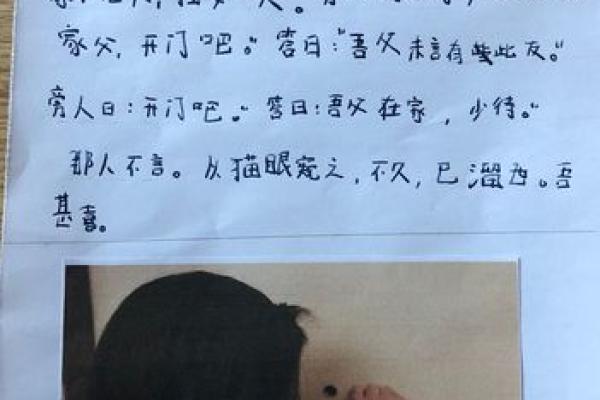 人。
家父，开门吧。"答曰："吾父未言有些此友。"
旁人曰：开门吧。"答曰：吾父在家，少待。"
那人不言。从猫眼窥之，不久，已溜西。吾
甚喜。